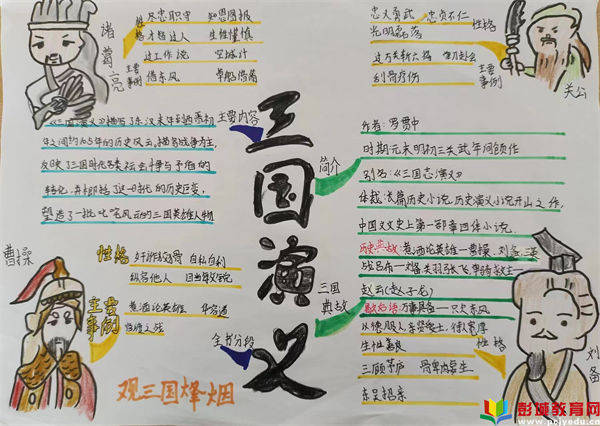 诸葛亮
性格
尽忠职守 知恩图报
才智过人 生性谨慎
主要事例
空城计
借东风 草船借箭
忠大勇武 忠贞不仁
性格
光明磊落
过五关斩六将 单刀赴会
主要事例
刮骨疗伤
关公
主要内容
《三国演义》描写了东汉末年到西晋初
年之间约105年的历史风云,描写战争为主,
反映了三国时代各类社会斗争与矛盾的
转化,并概括了这一时代的历史巨变,
塑造了一批叱咤风云的三国英雄人物
三国演义
简介
作者:罗贯中
时期元末明初三关武年间颜作
别名:《三国志演义》
体裁:长篇历史小说,历史演义小说开山之作,
中国文文史上第一部章回体小说.
三国典故
历史典故:煮酒论英雄—曹操,刘备
战吕布—刘备关羽张飞,单骑救主—
赵云(赵子龙)
歇后语:万事具备—只欠东风
曹操
性格
奸诈多疑 自私自利
主要事例
煮酒论英雄 华容道
赤壁之战
全书分段
性格
生性善良
三顾茅庐
东吴招亲
刘备
观三国烽烟
彭城教育网
www.pcjyedu.cn